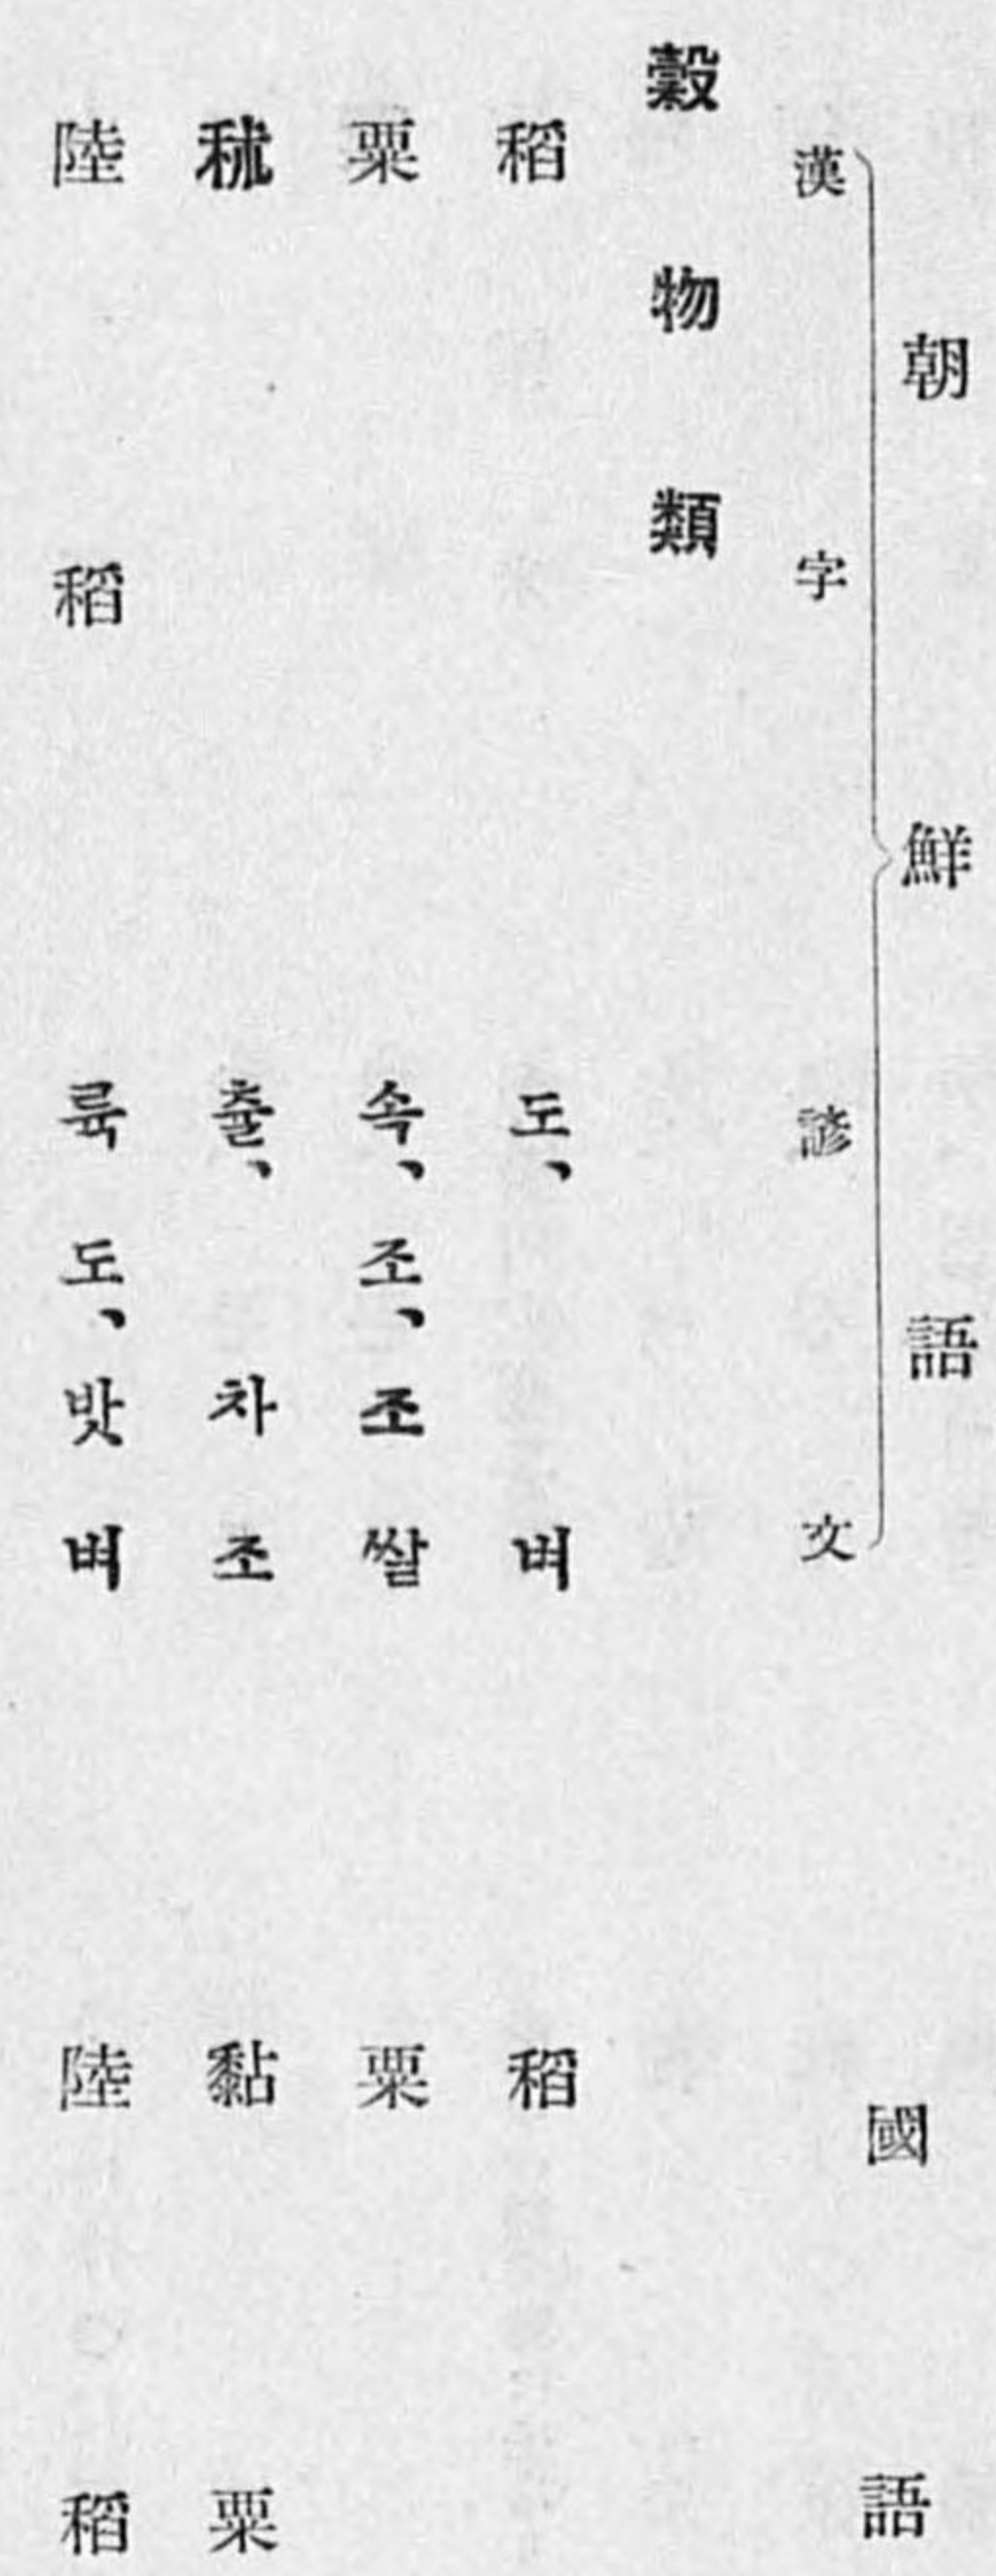 朝鮮語
漢字 諺文
國語
穀物類
稻 도、벼 稻
粟 속、조、조쌀 粟
秫 츌、차조 黏粟
陸稻 륙도、밧벼 陸稻